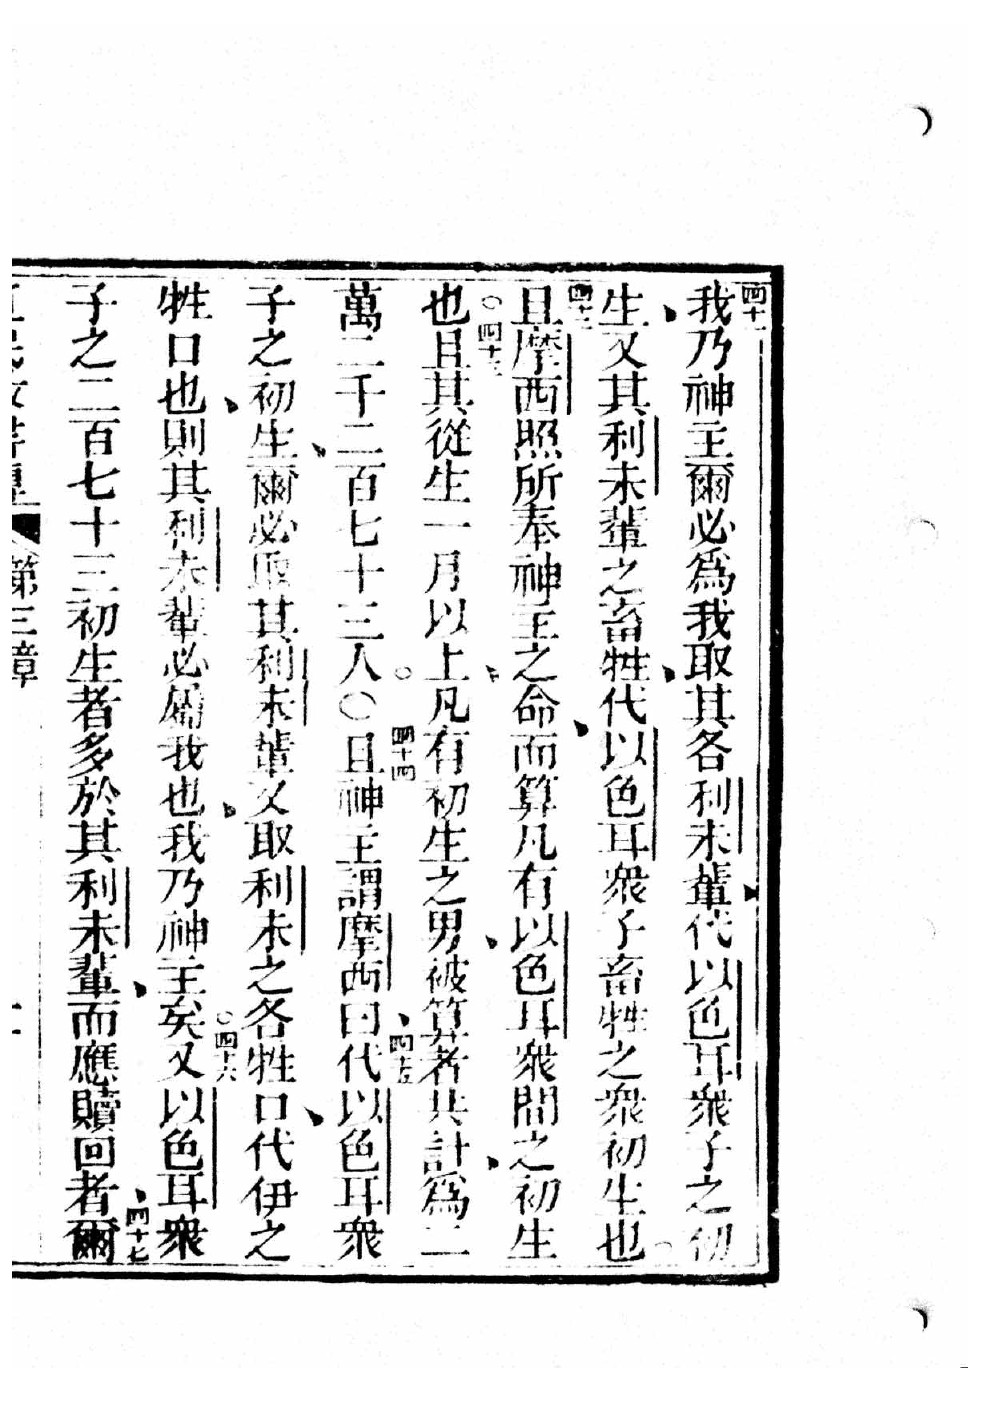 四十一
我乃神主爾必爲我取其各利未輩代以色耳衆子之初
生又其利未輩之畜牲代以色耳衆子畜牲之衆初生也
四十二
且摩西照所奉神主之命而算凡有以色耳衆間之初生
四十三
也且其從生一月以上凡有初生之男被算者共計爲二
萬二千二百七十三人〇且神主謂摩西曰代以色耳衆
四十四
四十五
子之初生爾必取其利未輩又取利未之各牲口代伊之
牲口也則其利未輩必屬我也我乃神主矣又以色耳衆
四十六
子之二百七十三初生者多於其利未輩而應贖回者爾
四十七
第三章